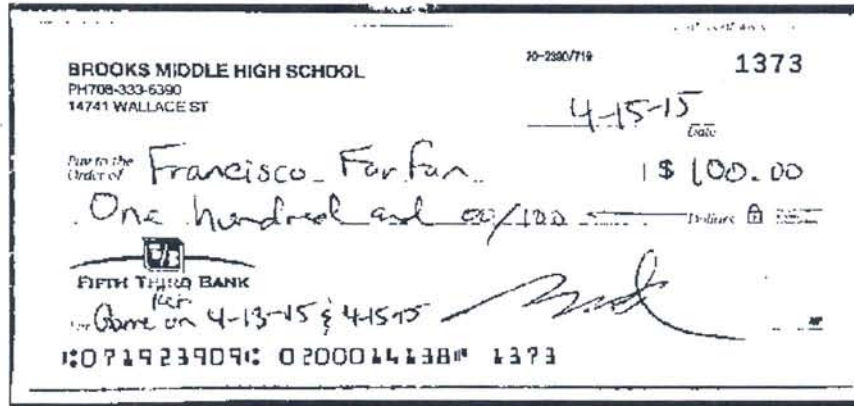 BROOKS MIDDLE HIGH SCHOOL
PH708-333-6390
14741 WALLACE ST
70-2390/719
1373
4-15-15
Date
Pay to the
Order of Francisco Farfan $ 100.00
One hundred and 00/100 Dollars
5/3
FIFTH THIRD BANK
Game on 4-13-15 & 4-15-15
⑆071923909⑆ 0200014138⑈ 1373